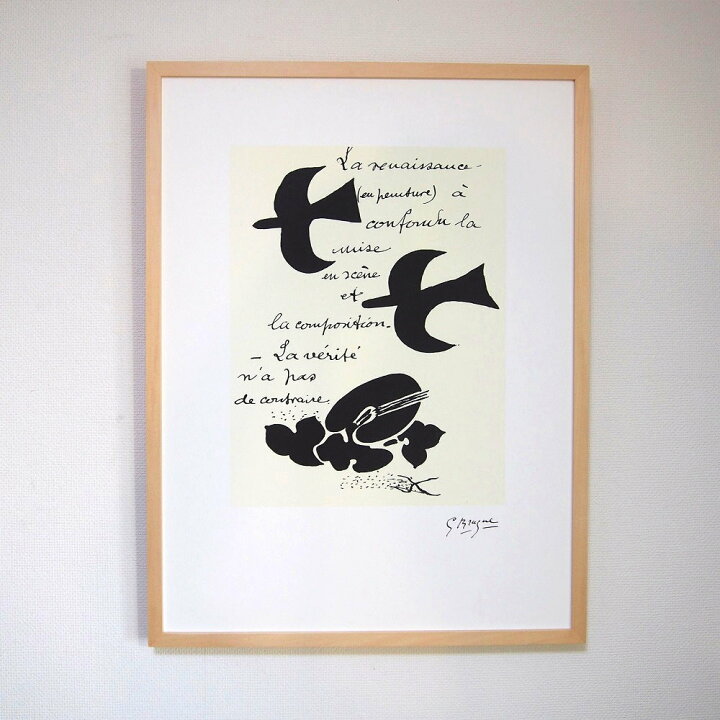 La renaissance
(en peinture) à
confondu la
mise
en scène
et
la composition.
– La vérité
n'a pas
de contraire.
G Braque